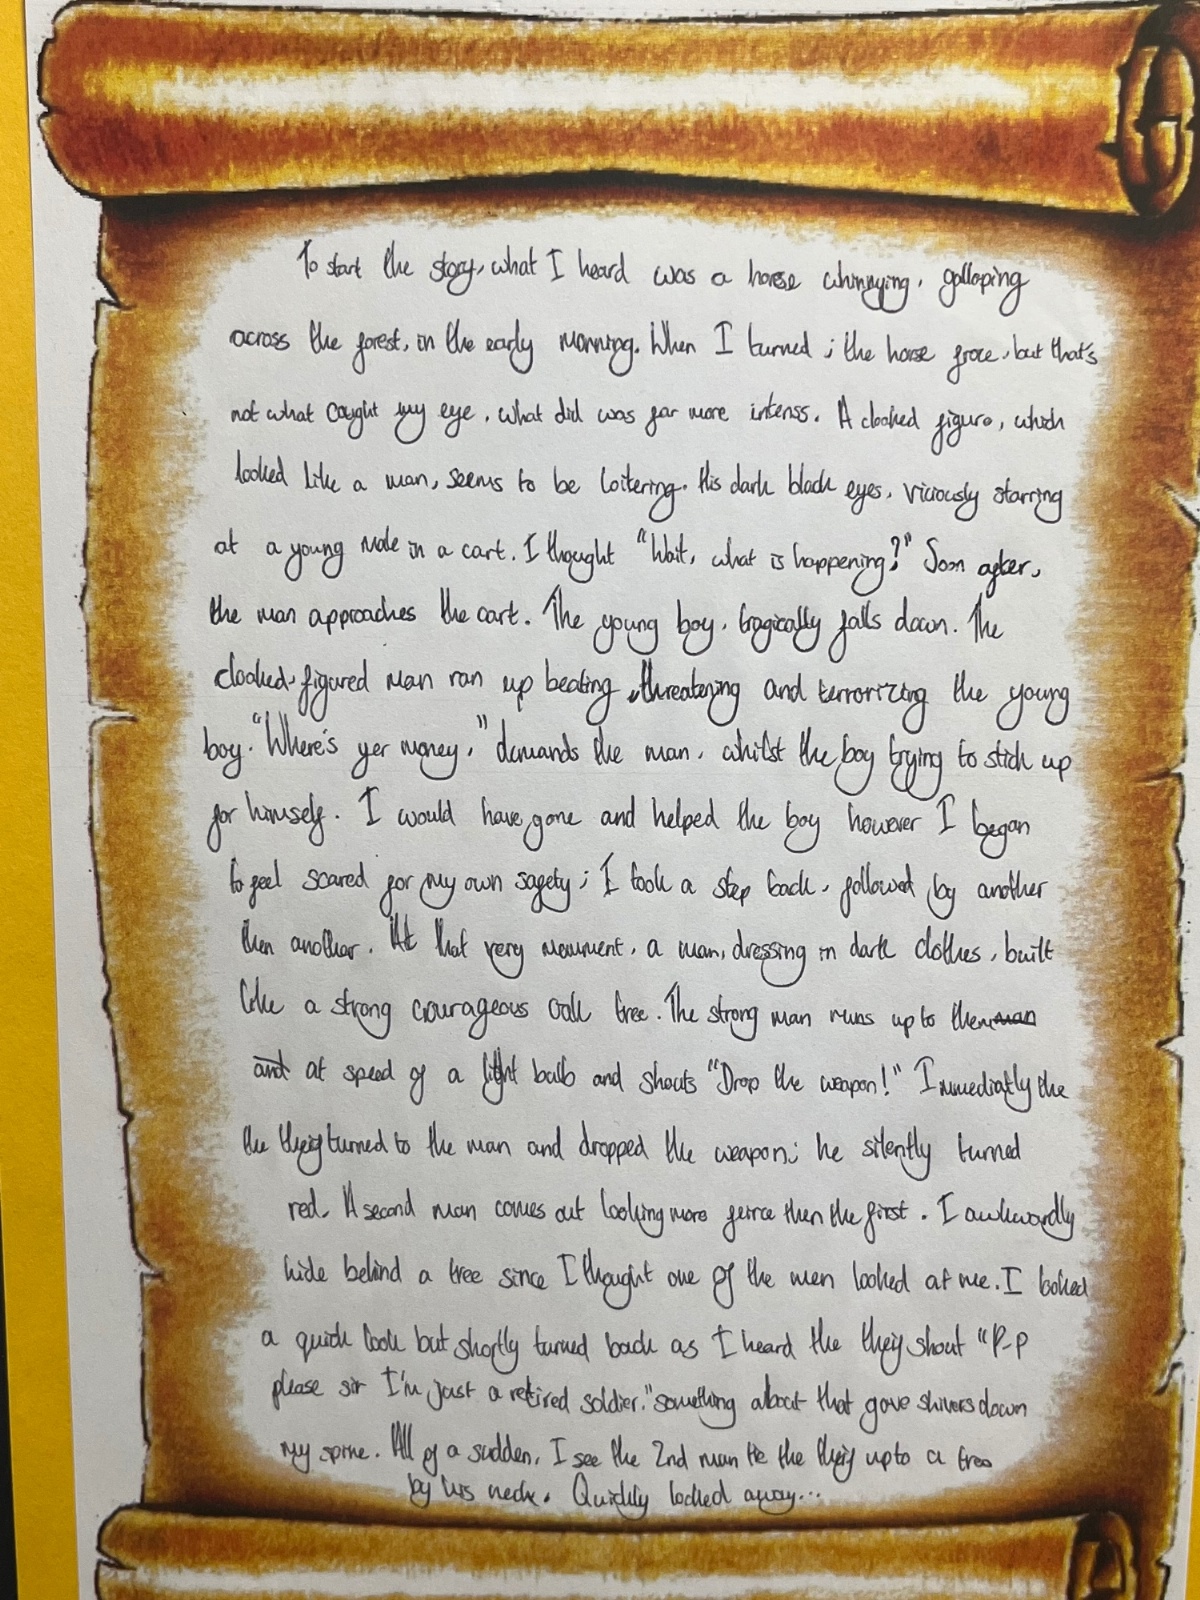 To start the story, what I heard was a horse whinnying, galloping
across the forest, in the early morning. When I turned ; the horse froze, but that's
not what cought my eye, what did was far more intenss. A cloaked figure, which
looked like a man, seems to be loitering. His dark black eyes, viciously starring
at a young male in a cart. I thought "Wait, what is happening?" Soon after,
the man approaches the cart. The young boy, tragically falls down. The
cloaked-figured man ran up beating, threatening and terrorizing the young
boy. "Where's yer money," demands the man, whilst the boy trying to stick up
for himself. I would have gone and helped the boy however I began
to feel scared for my own safety; I took a step back, followed by another
then another. At that very monument, a man, dressing in dark clothes, built
like a strong courageous oak tree. The strong man runs up to them man
and at speed of a light bulb and shouts "Drop the weapon!" Immediatly the
the theif turned to the man and dropped the weapon; he silently turned
red. A second man comes out looking more feirce then the first. I awkwardly
hide behind a tree since I thought one of the men looked at me. I looked
a quick look but shortly turned back as I heard the theif shout "P-p
please sir I'm just a retired soldier." something about that gave shivers down
my spine. All of a sudden, I see the 2nd man tie the theif up to a tree
by his neck. Quickly looked away...